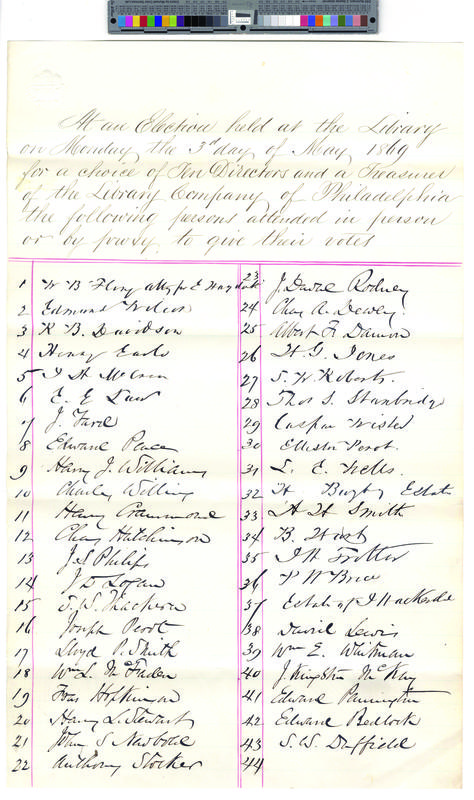 At an Election held at the Library
on Monday the 3rd day of May 1869
for a choice of Ten Directors and a Treasurer
of the Library Company of Philadelphia
the following persons attended in person
or by proxy to give their votes
1 W B Atty for E
2 Edmund Wilcox
3 R B. Davidson
4 Henry Earle
5 J H
6 E. E Law
7 J.
8 Edward Pace
9 Henry J. Williams
10 Charles Willing
11 Henry Crammond
12 Chas Hutchinson
13 J. S Philips
14 J D Logan
15 T. S.
16 Joseph Perot
17 Lloyd P. Smith
18 Wm L. McFaden
19 Fras Hopkinson
20 Henry L. Stewart
21 John S Newbold
22 Anthony Stocker
23 J. Rodney
24 Chas A. Dewey.
25 Albert F. Damon
26 H. G. Jones
27 S. W Roberts.
28 Thos S. Stanbridge
29 Caspar Wister
30 Elliston Perot.
31 L. E. Wells.
32 H Estate
33 A H Smith
34 B. West
35 J H Trotter
36 P W Brice
37 Estate of J
38 David Lewis
39 Wm E. Whitman
40 J. Kingston McKay
41 Edward Pennington
42 Edward Bedlock
43 S. W. Duffield
44